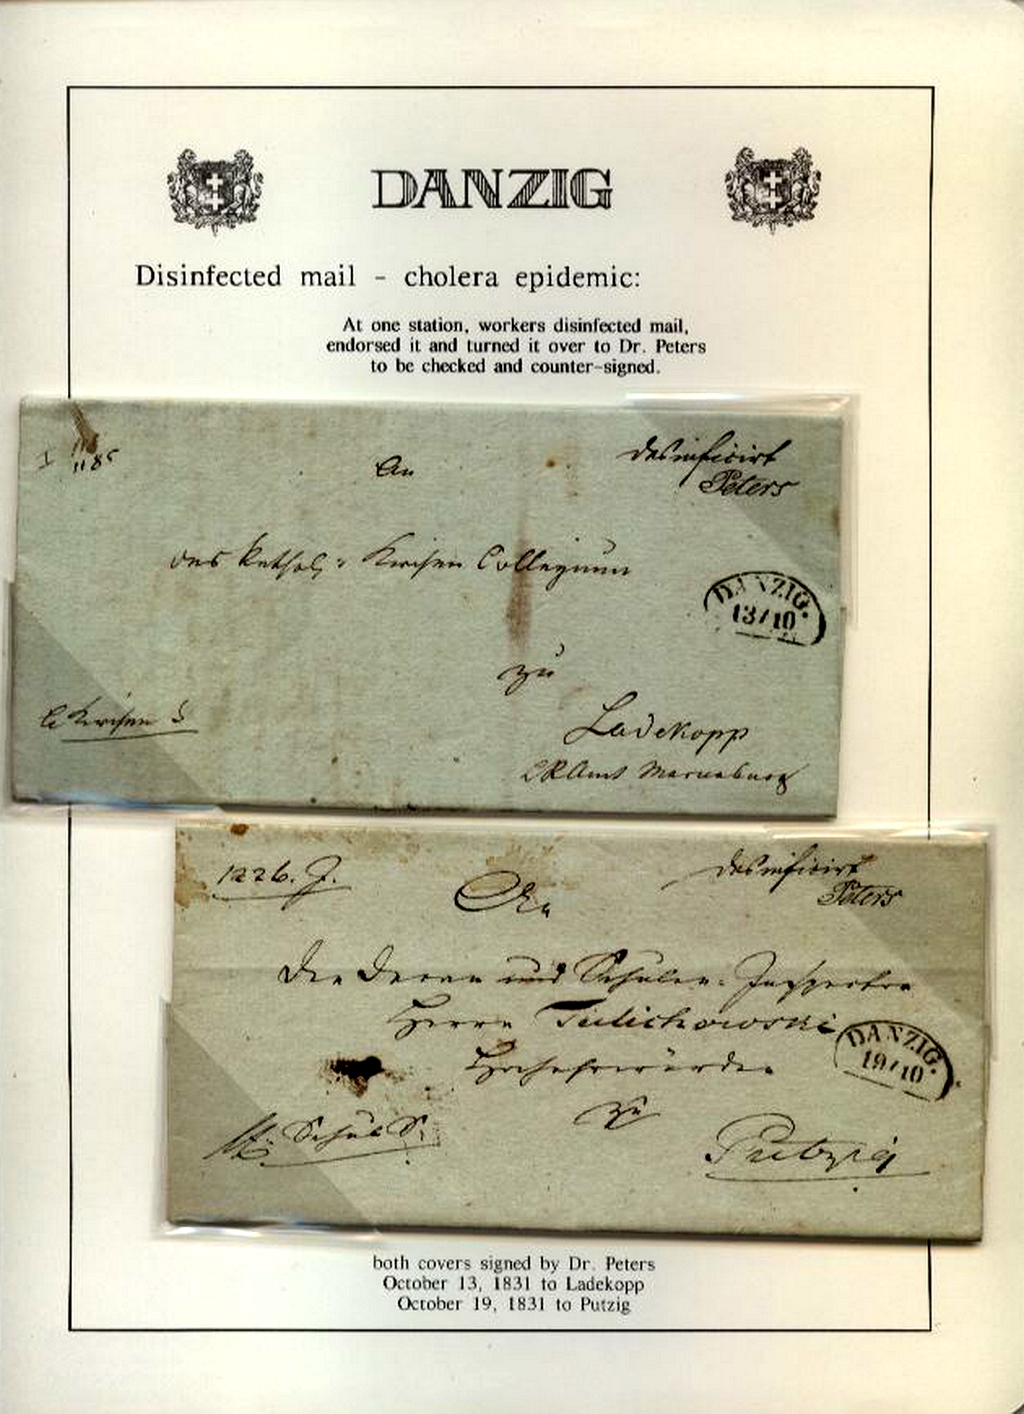 DANZIG
Disinfected mail - cholera epidemic:
At one station, workers disinfected mail,
endorsed it and turned it over to Dr. Peters
to be checked and counter-signed.
desinficirt
Peters
An
das Kathol: Kirchen Collegium
DANZIG.
13/10
zu
Ladekopp
Kirchen S
Amt Marienburg
1226. J.
desinficirt
Peters
An
den Decan und Schulen-Inspector
Herrn Tulichowski
Hochehrwürden
DANZIG.
19/10
zu
Schul S.
Putzig
both covers signed by Dr. Peters
October 13, 1831 to Ladekopp
October 19, 1831 to Putzig